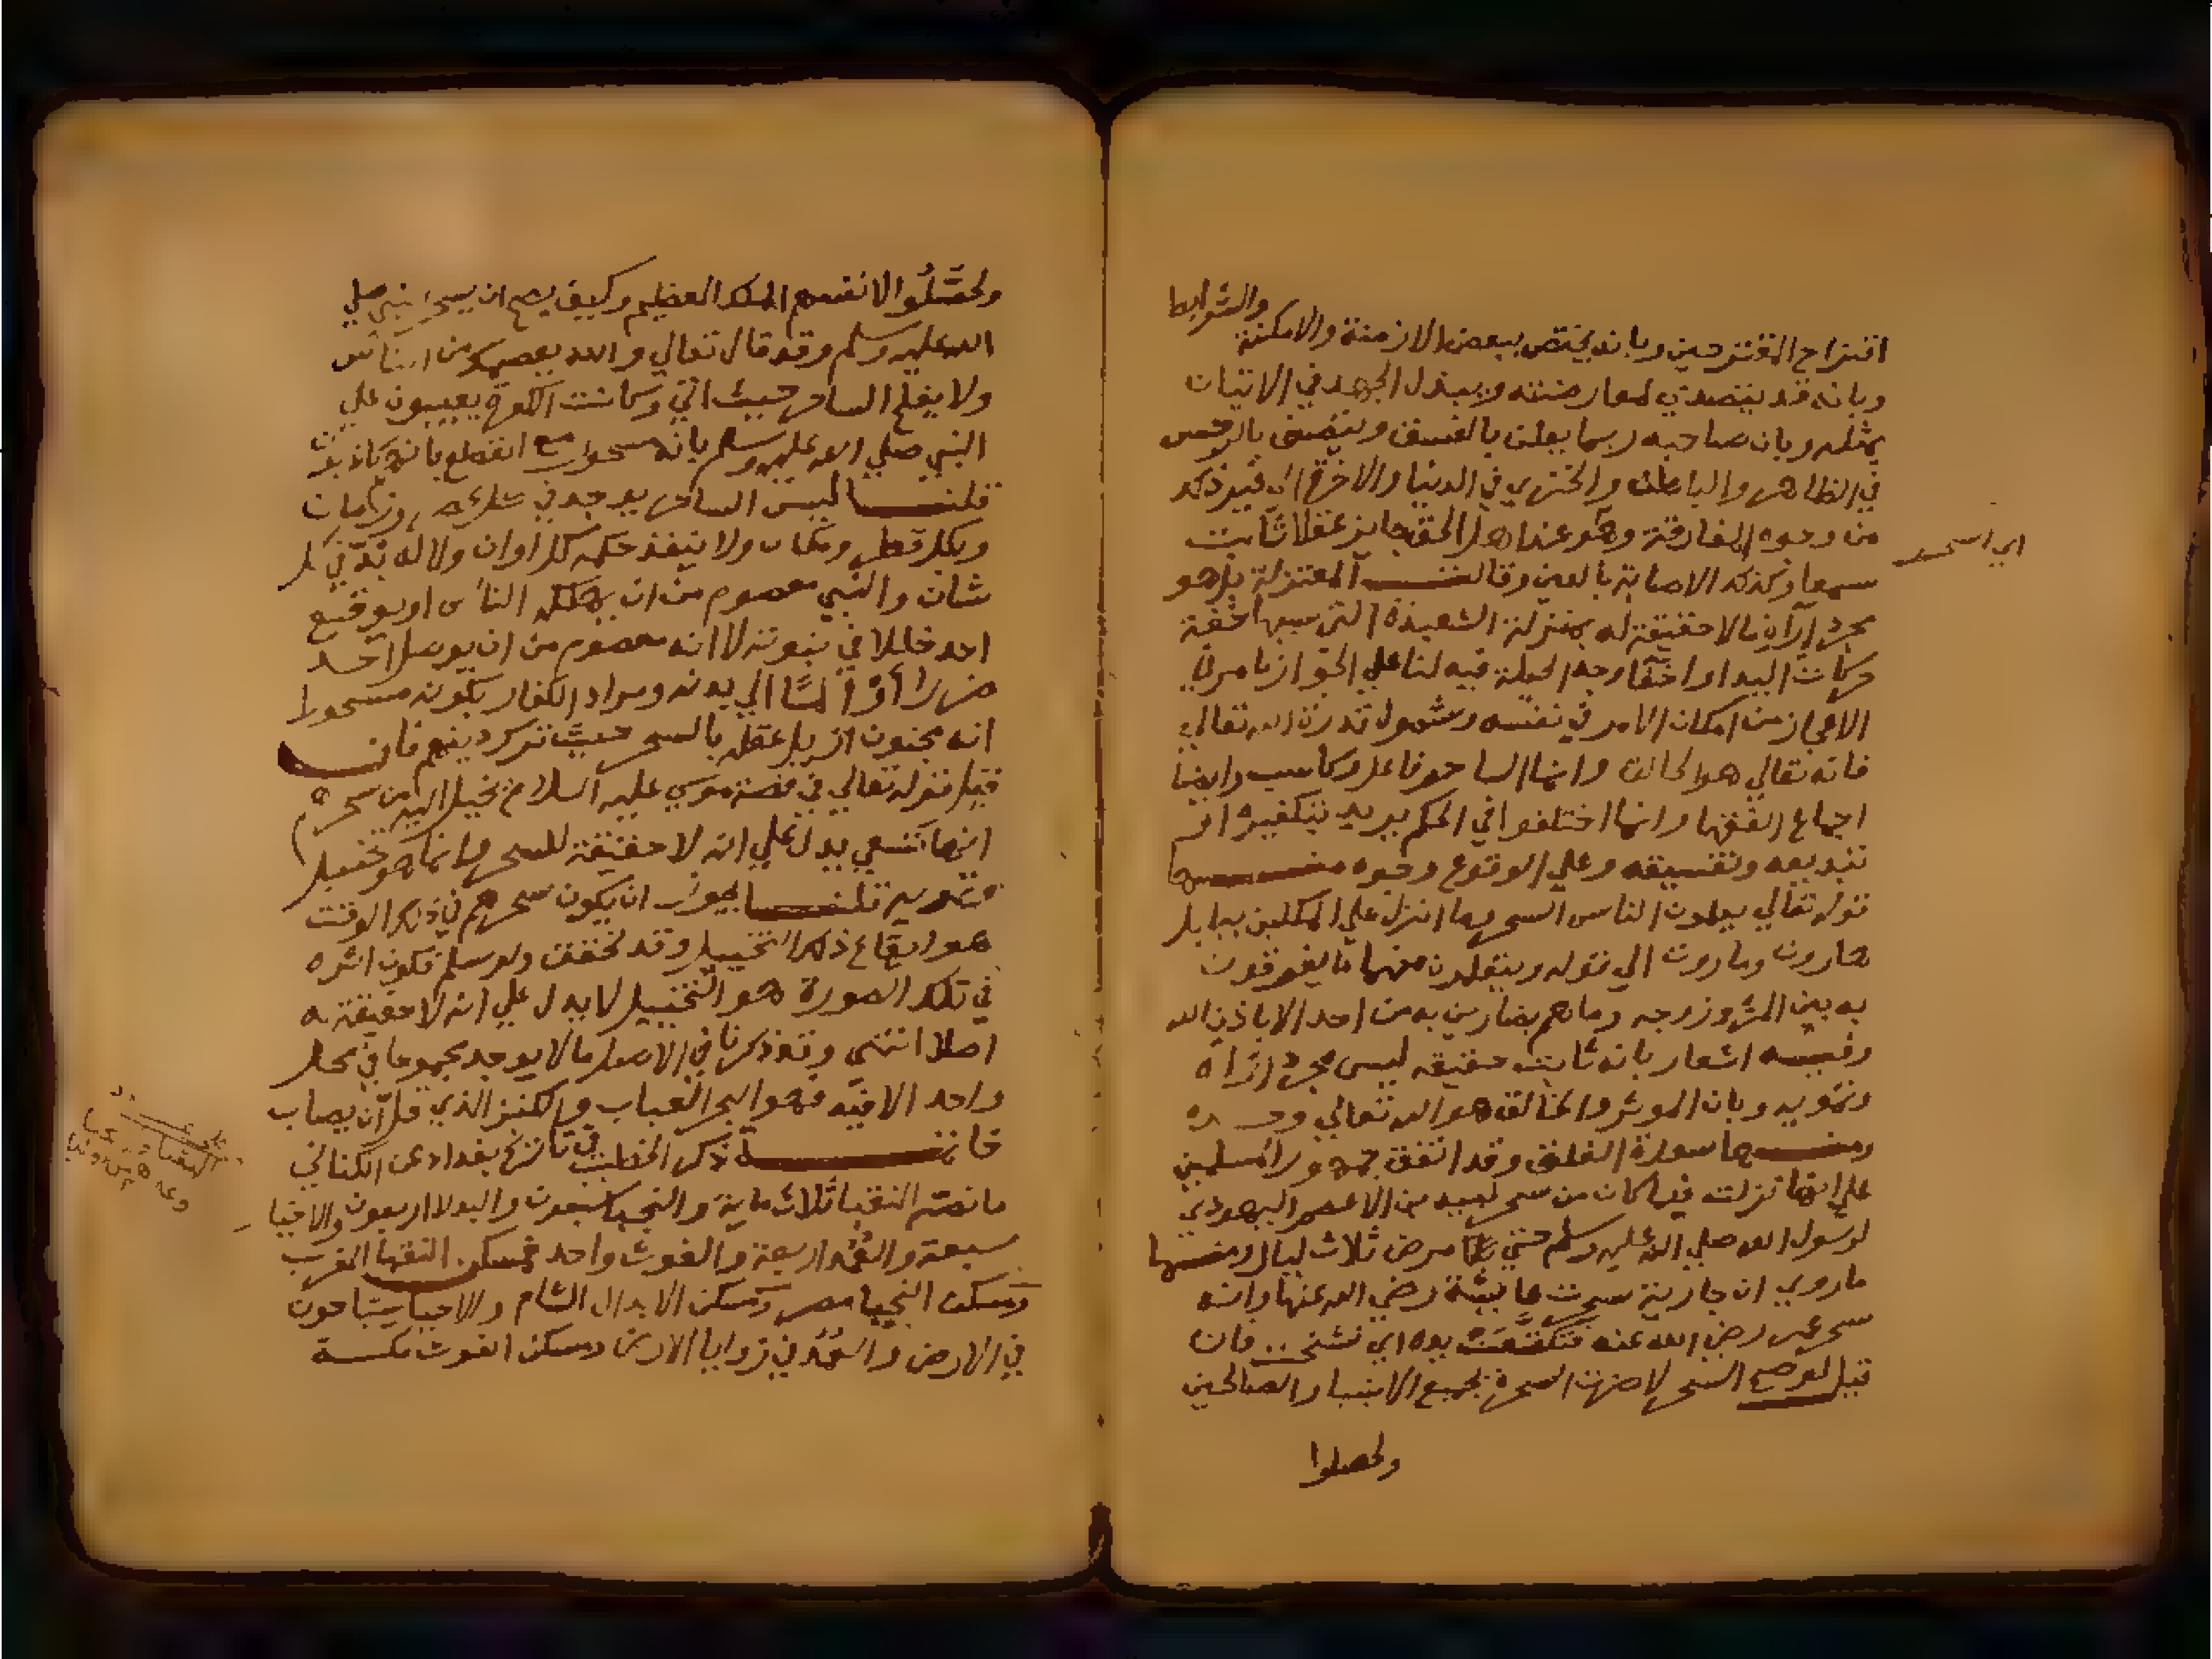 اقتراح المقترحين وبانه يختص ببعض الازمنة والامكنة والشرايط
وبانه قد يتصدي لمعارضته ويبذل الجهد في الاتيان
بمثله وبان صاحبه ربما يعلن بالفسق ويتصف بالرجس
في الظاهر والباطن والخزي في الدنيا والاخرة الي غير ذلك
من وجوه المفارقة وهو عند اهل الحق جايز عقلا ثابت
اي السحر
سمعا وكذلك الاصابة بالعين وقالت المعتزلة بل هو
مجرد اراة مالا حقيقة له بمنزلة الشعبذة التي سببها خفة
حركات اليد او اخفا وجه الحيلة فيه لنا علي الجواز ما مر في
الاعجاز من امكان الامر في نفسه وشمول قدرة الله تعالي
فانه تعالي هو الخالق وانما الساحر فاعل وكاسب وايضا
اجماع الفقها وانما اختلفوا في الحكم يريد بتكفيره او
تبديعه وتفسيقه وعلي الوقوع وجوه منها
قوله تعالي يعلمون الناس السحر وما انزل علي الملكين ببابل
هاروت وماروت الي قوله ويتعلمون منهما ما يفرقون
به بين المرء وزوجه وما هم بضارين به من احد الا باذن الله
وفيه اشعار بانه ثابت حقيقة ليس مجرد اراة
وتمويه وبان الموثر والخالق هو الله تعالي وحده
ومنها سورة الفلق وقد اتفق جمهور المسلمين
علي انها نزلت فيما كان من سحر لبيد بن الاعصم اليهودي
لرسول الله صلي الله عليه وسلم حتي مرض ثلاث ليال ومنها
ماروي ان جارية سحرت عايشة رضي الله عنها وانه
سحر عمر رضي الله عنه فتكنعت يده اي تشنجت فان
قيل لو صح السحر لاضرت السحرة بجميع الانبيا والصالحين
ولحصلوا
ولحصلوا لانفسهم الملك العظيم وكيف يصح ان يسحر النبي صلي
الله عليه وسلم وقد قال تعالي والله يعصمك من الناس
ولا يفلح الساحر حيث اتي وكانت الكفرة يعيبون علي
النبي صلي الله عليه وسلم بانه مسحور مع القطع بانهم كاذبون
قلنا ليس الساحر يوجد في كل عصر وزمان
وبكل قطر ومكان ولا ينفذ حكمه كل اوان ولا له يد في كل
شان والنبي معصوم من ان يهلكه الناس او يوقع
احد خللا في نبوته لا انه معصوم من ان يوصل احد
ضررا او الما الي بدنه ومراد الكفار بكونه مسحورا
انه مجنون ازيل عقله بالسحر حيث ترك دينهم فان
قيل قوله تعالي في قصة موسي عليه السلام يخيل اليه من سحرهم
انها تسعي يدل علي انه لا حقيقة للسحر وانما هو تخييل
وتمويه قلنا يجوز ان يكون سحرهم في ذلك الوقت
هو ايقاع ذلك التخييل وقد تحقق ولو سلم فكون اثره
في تلك الصورة هو التخييل لا يدل علي انه لا حقيقة له
اصلا انتهي وقد ذكرنا في الاصل مالا يوجد مجموعا في محل
واحد الا فيه فهو البحر العباب والكنز الذي قل ان يصاب
خاتمة ذكر الخطيب في تاريخ بغداد عن الكتاني
ما نصه النقبا ثلاث ماية والنجبا سبعون والبدلا اربعون والاخيار
سبعة والعُمُد اربعة والغوث واحد فمسكن النقبا الغرب
ومسكن النجبا مصر ومسكن الابدال الشام والاخيار سياحون
في الارض والعُمُد في زوايا الارض ومسكن الغوث مكة